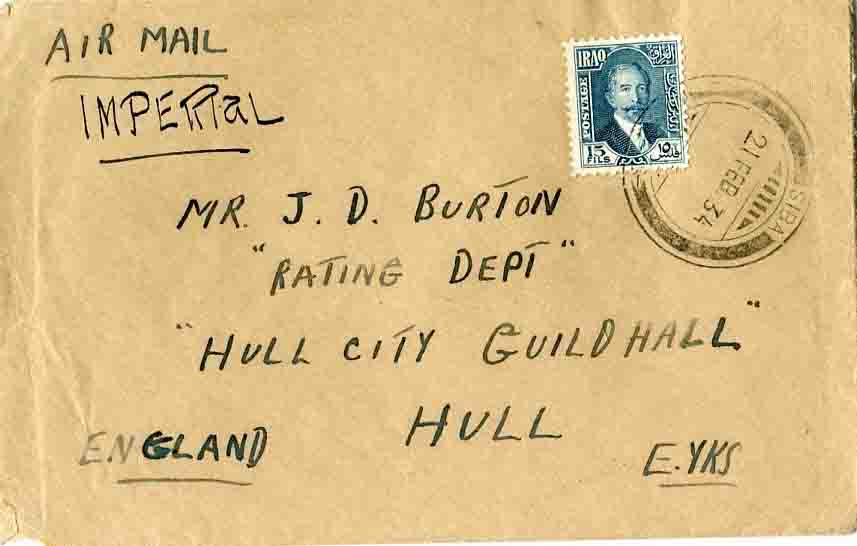 AIR MAIL
IMPERIAL
IRAQ العراق
POSTAGE
15 FILS ١٥ فلس
SIBA
21 FEB 34
MR. J. D. BURTON
"RATING DEPT"
"HULL CITY GUILDHALL"
HULL
ENGLAND
E.YKS